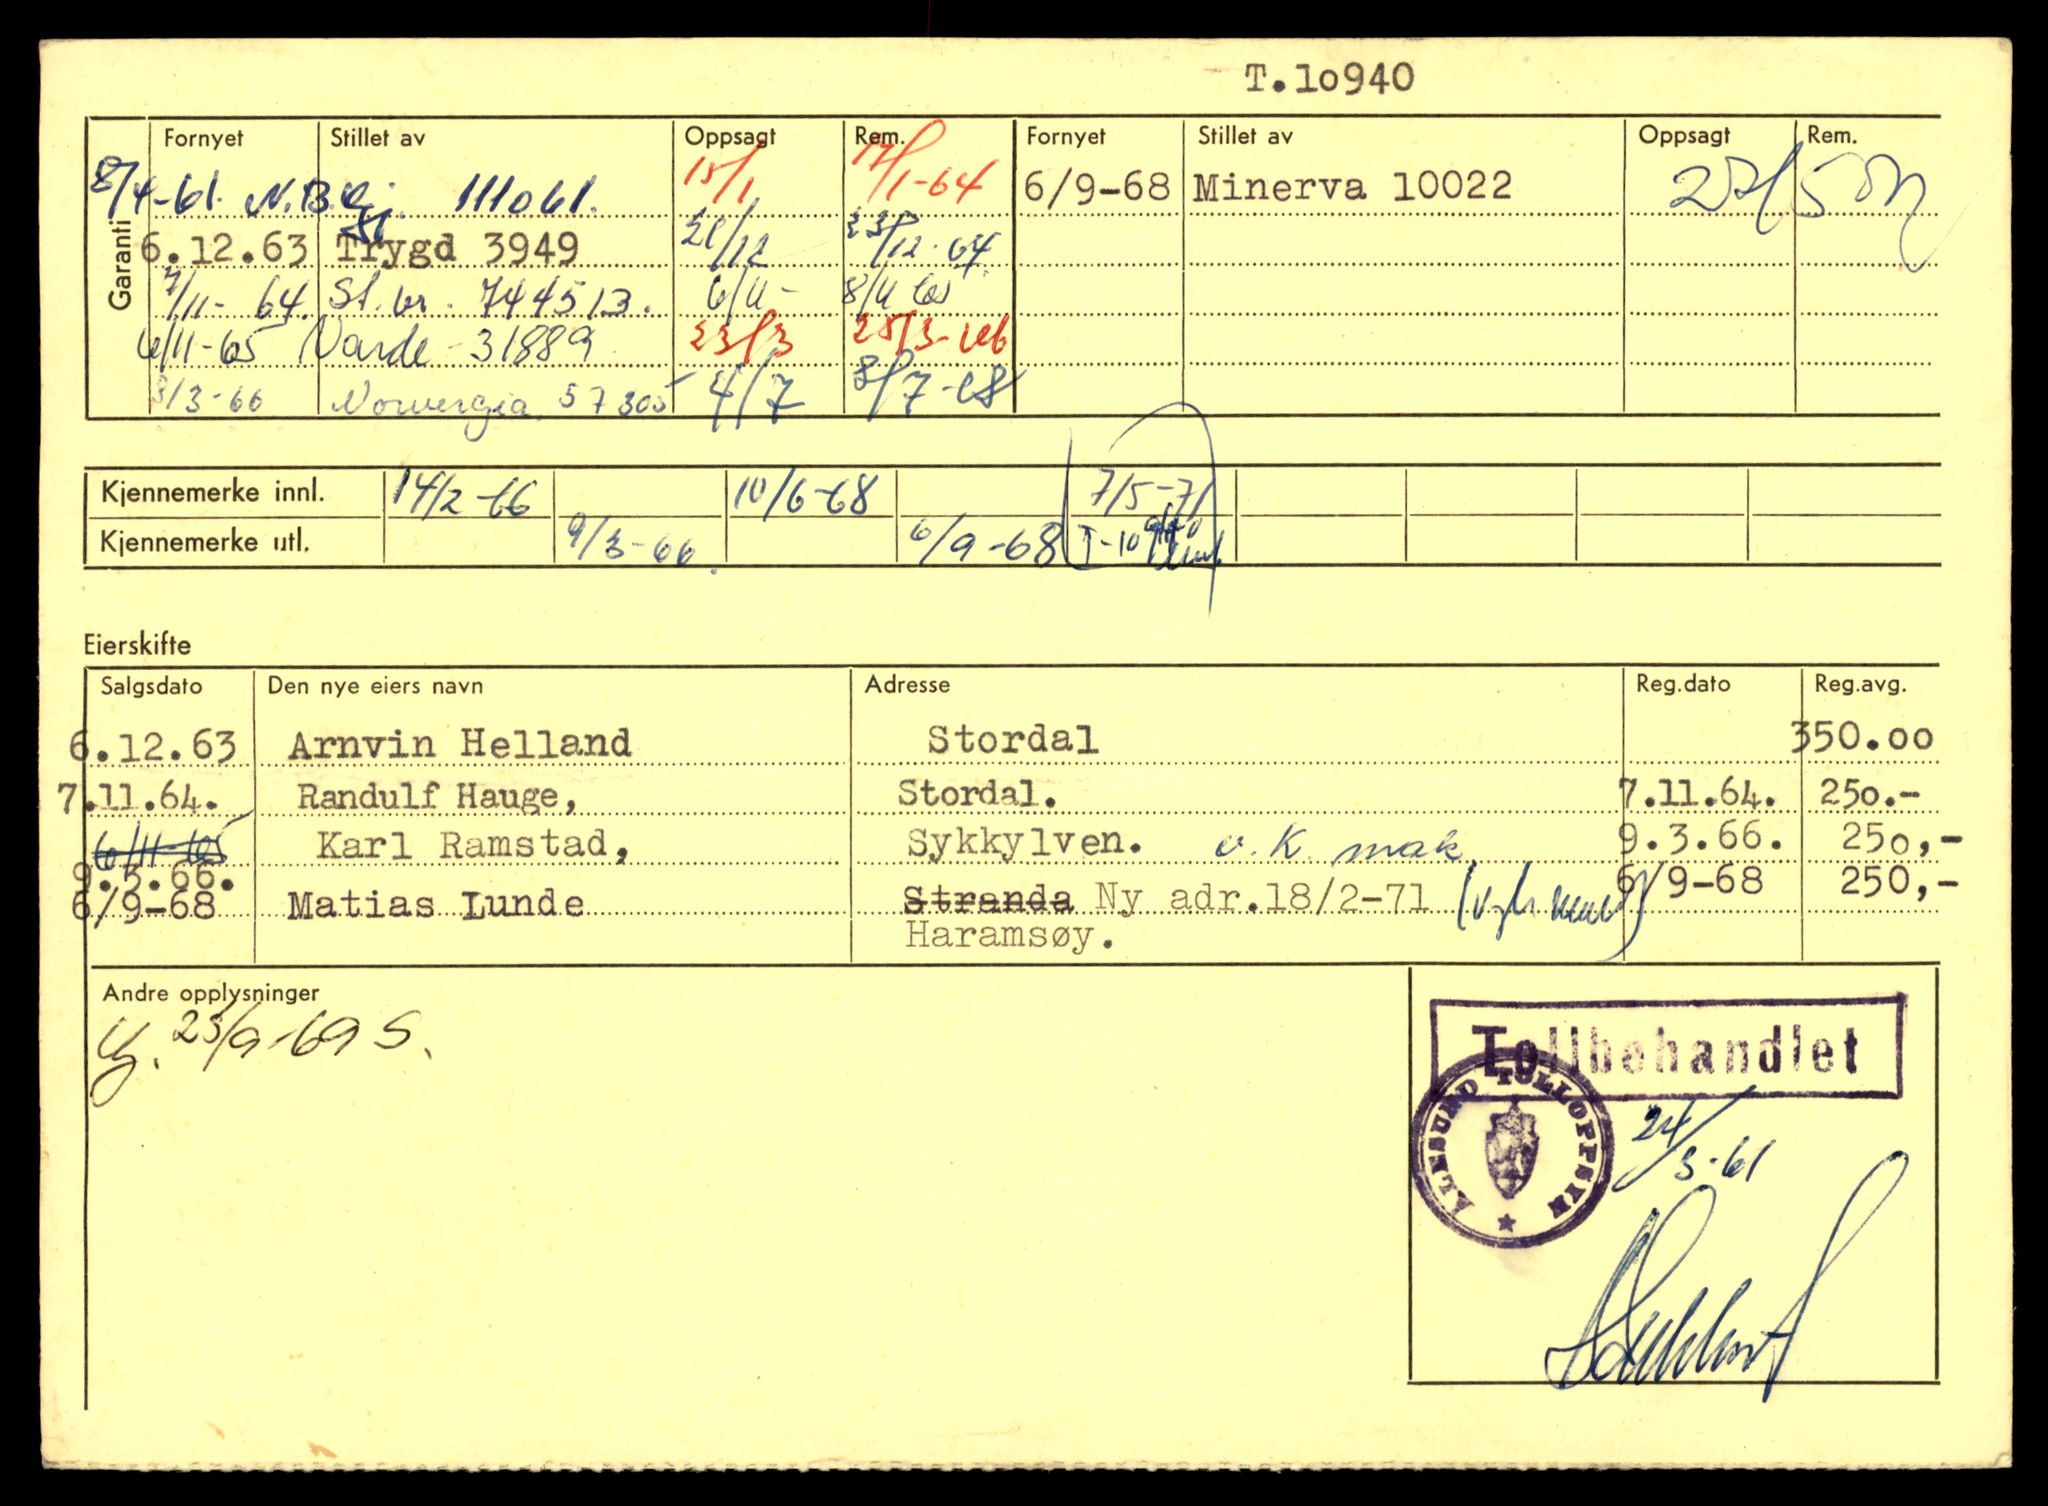 T.10940
Fornyet Stillet av Oppsagt Rem. Fornyet Stillet av Oppsagt Rem.
Garanti
8/4-61. N.B. 111061. 15/1 17/1-64 6/9-68 Minerva 10022 27/5
6.12.63 Trygd 3949 21/12 23/12-64
7/11-64. St.br. 744513. 6/11- 8/11 65
6/11-65 Varde 31889 23/3 25/3-66
3/3-66 Norvergia 57305 4/7 8/7-68
Kjennemerke innl. 14/2-66 10/6-68 7/5-71
Kjennemerke utl. 9/3-66. 6/9-68
Eierskifte
Salgsdato Den nye eiers navn Adresse Reg.dato Reg.avg.
6.12.63 Arnvin Helland Stordal 350.00
7.11.64. Randulf Hauge, Stordal. 7.11.64. 250.-
6/11-65 Karl Ramstad, Sykkylven. v.K. mak. 9.3.66. 250,-
9.3.66.
6/9-68 Matias Lunde Stranda Ny adr.18/2-71 6/9-68 250,-
Haramsøy.
Andre opplysninger
23/9-69 S.
Tollbehandlet
ÅLESUND TOLLOPPSYN
24/3-61